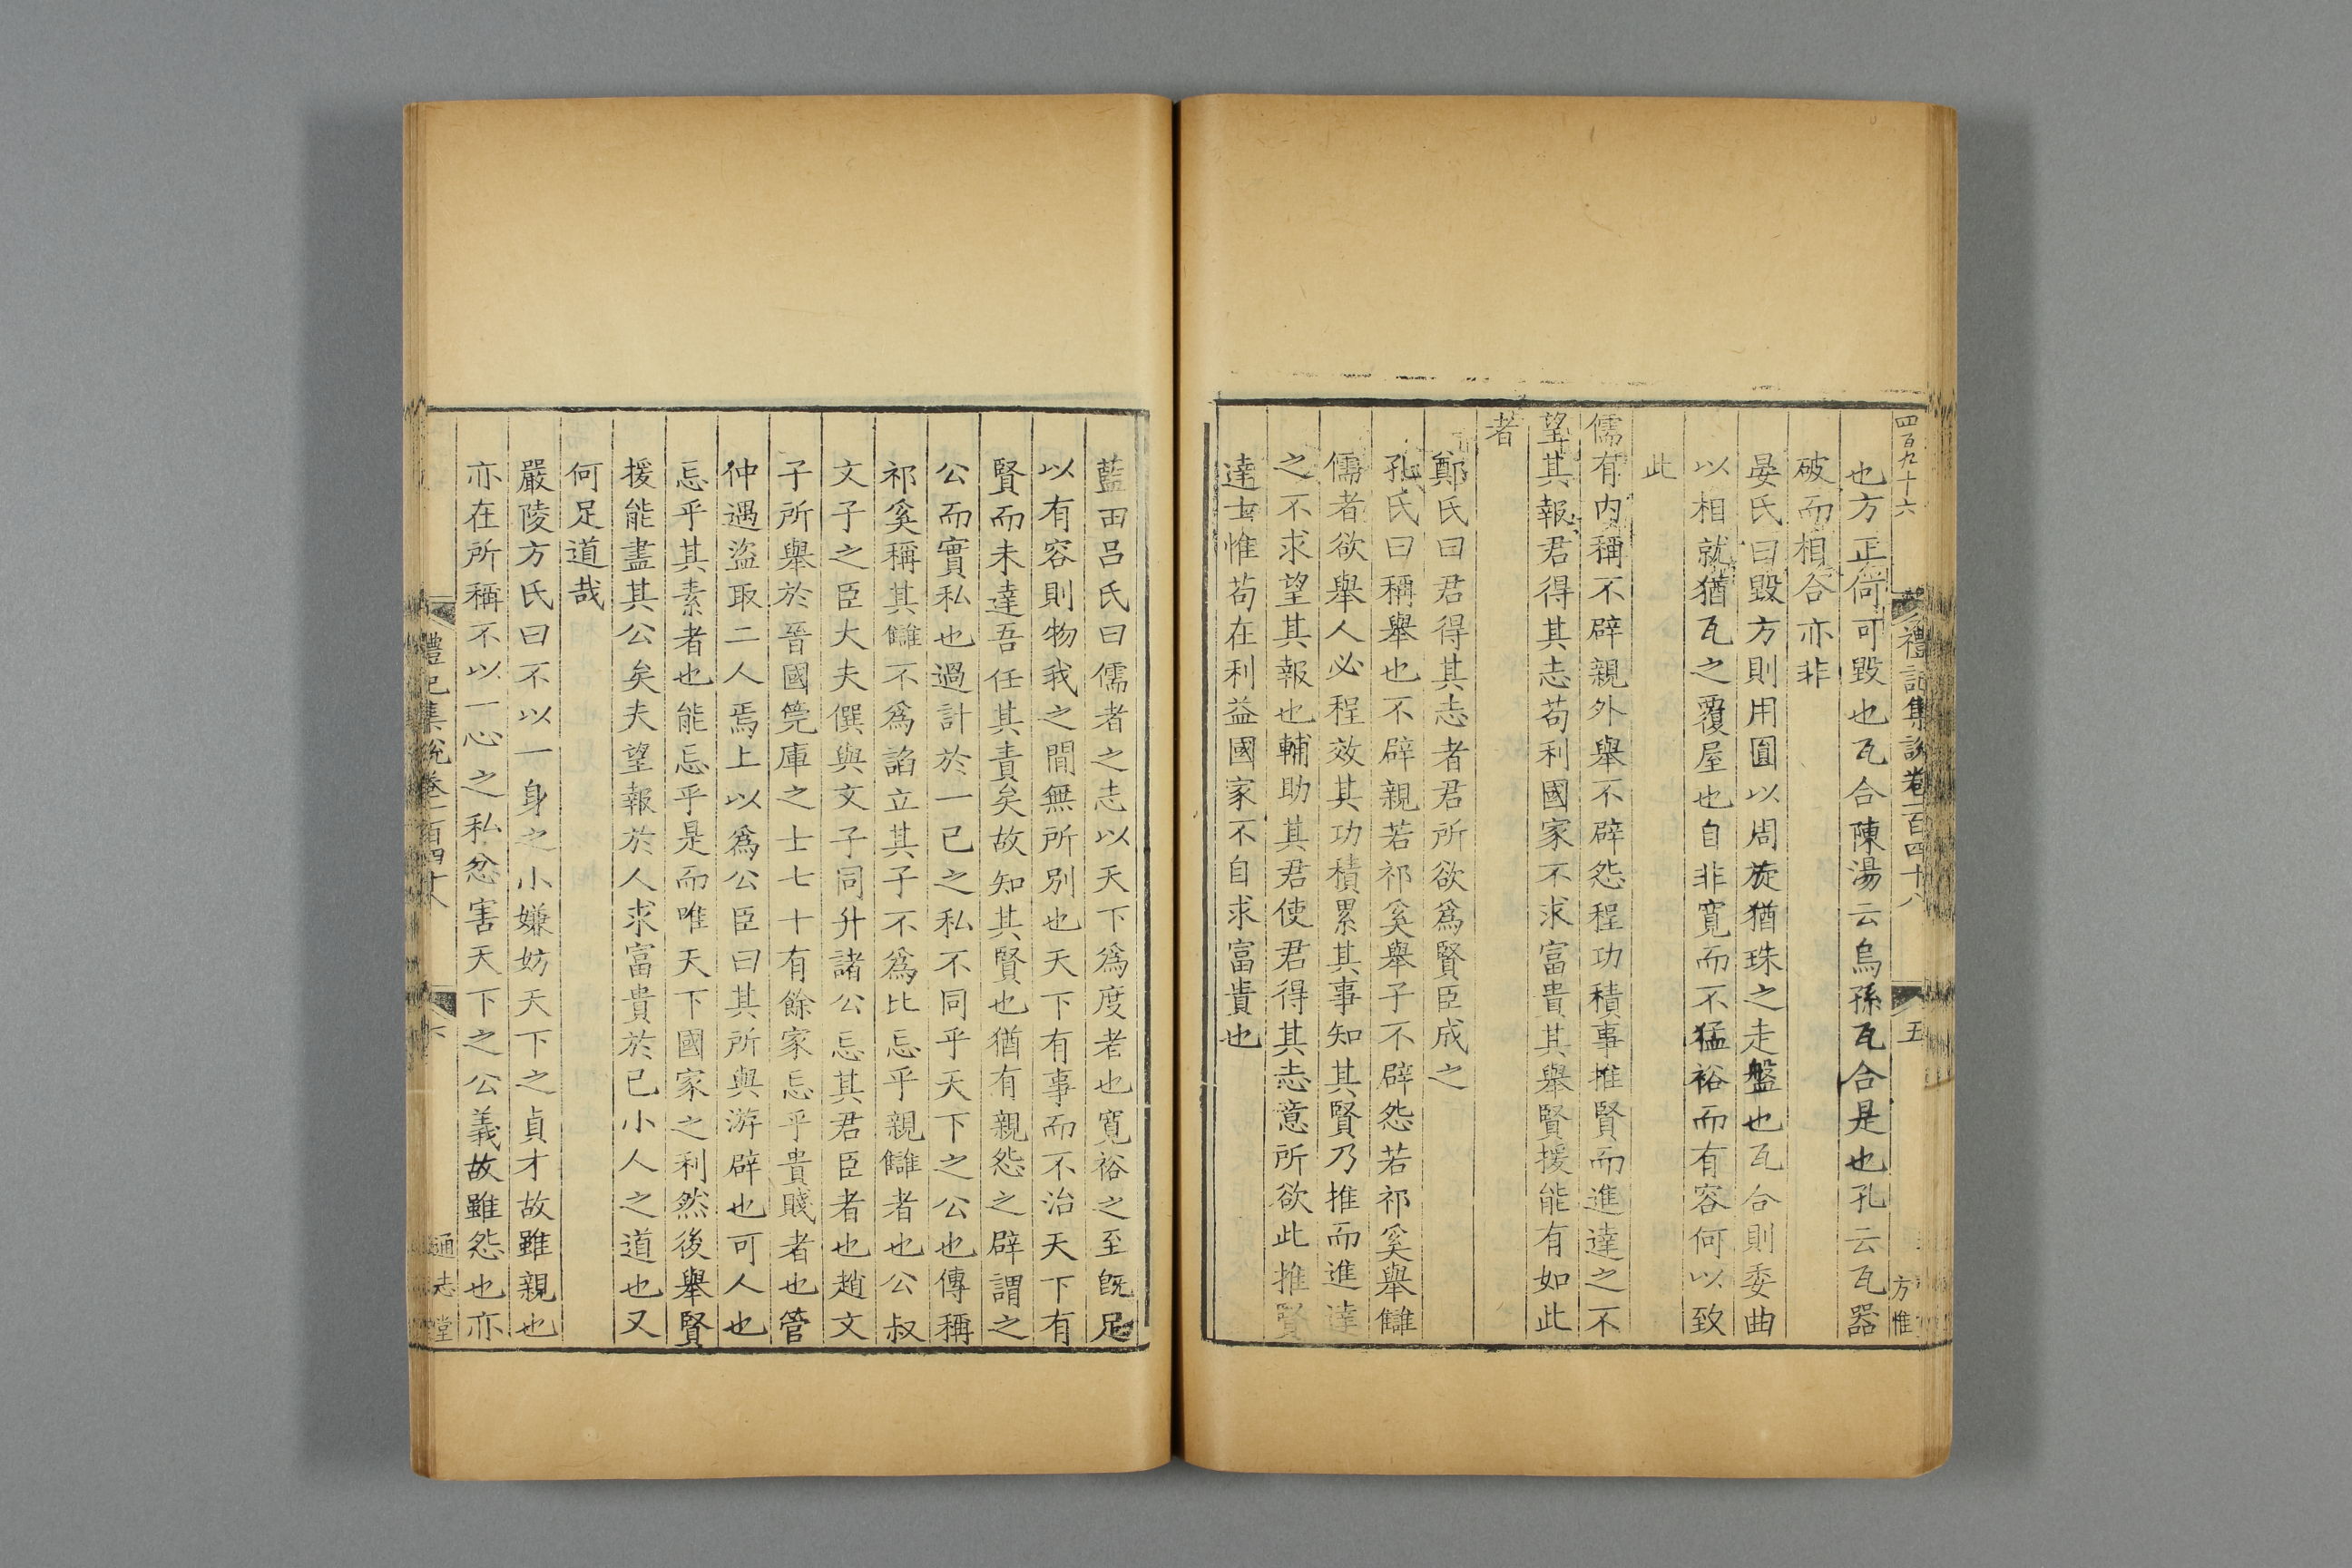 四百九十六
禮記集説卷一百四十八
五
方惟
也方正何可毀也瓦合陳湯云烏孫瓦合是也孔云瓦器
破而相合亦非
晏氏曰毀方則用圓以周旋猶珠之走盤也瓦合則委曲
以相就猶瓦之覆屋也自非寛而不猛裕而有容何以致
此
儒有内稱不辟親外舉不辟怨程功積事推賢而進達之不
望其報君得其志苟利國家不求富貴其舉賢援能有如此
者
鄭氏曰君得其志者君所欲爲賢臣成之
孔氏曰稱舉也不辟親若祁奚舉子不辟怨若祁奚舉讎
儒者欲舉人必程效其功積累其事知其賢乃推而進達
之不求望其報也輔助其君使君得其志意所欲此推賢
達士惟苟在利益國家不自求富貴也
藍田呂氏曰儒者之志以天下爲度者也寛裕之至旣足
以有容則物我之間無所別也天下有事而不治天下有
賢而未達吾任其責矣故知其賢也猶有親怨之辟謂之
公而實私也過計於一已之私不同乎天下之公也傳稱
祁奚稱其讎不爲諂立其子不爲比忘乎親讎者也公叔
文子之臣大夫僎與文子同升諸公忘其君臣者也趙文
子所舉於晉國筦庫之士七十有餘家忘乎貴賤者也管
仲遇盜取二人焉上以爲公臣曰其所與游辟也可人也
忘乎其素者也能忘乎是而唯天下國家之利然後舉賢
援能盡其公矣夫望報於人求富貴於已小人之道也又
何足道哉
嚴陵方氏曰不以一身之小嫌妨天下之貞才故雖親也
亦在所稱不以一心之私忿害天下之公義故雖怨也亦
禮記集説卷一百四十八
六
通志堂